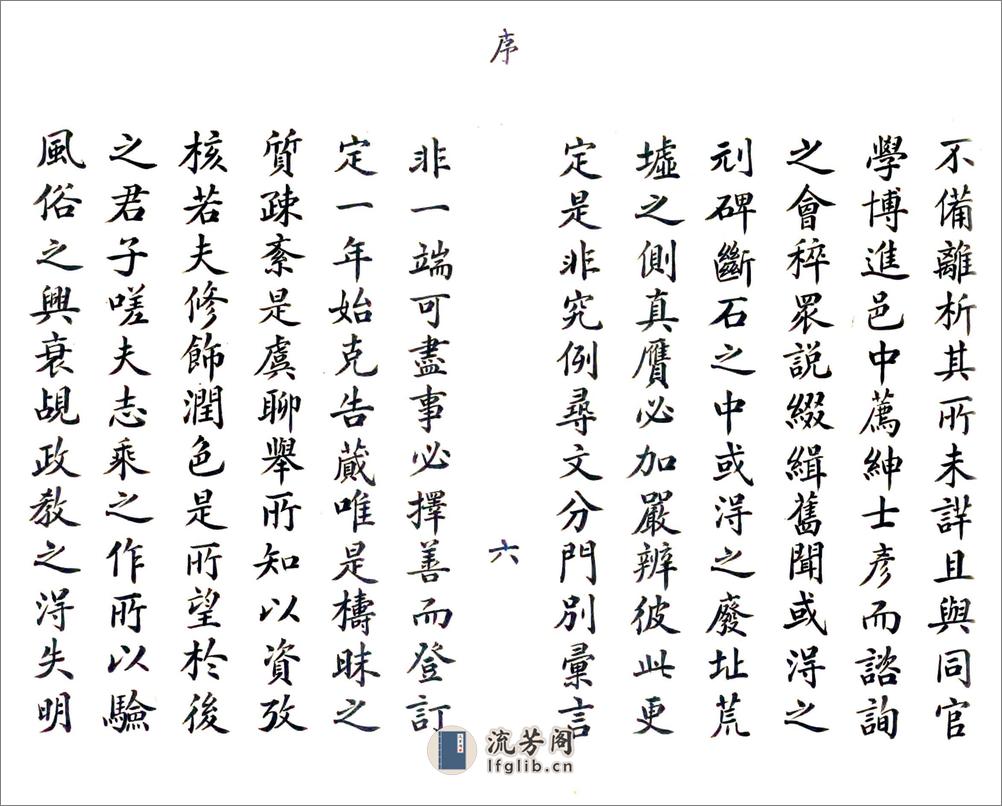 序
不備離析其所未詳且與同官
學博進邑中薦紳士彥而諮詢
之會稡眾説綴緝舊聞或淂之
刓碑斷石之中或淂之廢址荒
墟之側真贋必加嚴辨彼此更
定是非究例尋文分門別彙言
六
非一端可盡事必擇善而登訂
定一年始克告蕆唯是檮昧之
質疎紊是虞聊舉所知以資攷
核若夫修飾潤色是所望於後
之君子嗟夫志乘之作所以驗
風俗之興衰覘政教之淂失明
流芳阁
lfglib.cn